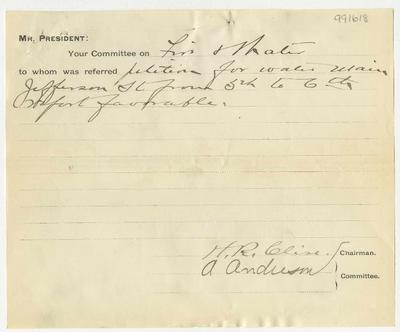 991618
MR. PRESIDENT:
Your Committee on Fire & Water
to whom was referred petition for water main
Jefferson St. from 5th to 6th
report favorable.
H. R. Clise. Chairman.
A Anderson Committee.